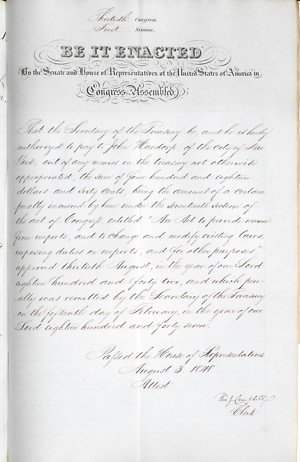 Thirtieth Congress
First Session
BE IT ENACTED
By the Senate and House of Representatives of the United States of America in
Congress Assembled
That the Secretary of the Treasury be and he is hereby
authorized to pay to John of the city of New
York, out of any money in the treasury not otherwise
appropriated, the sum of four hundred and eighteen
dollars and sixty cents being the amount of a certain
penalty incurred by him under the section of
the act of Congress entitled "An Act to provide revenue
from imports, and to change and modify existing laws
imposing duties on imports, and for other purposes"
approved thirtieth August, in the year of our Lord
eighteen hundred and forty two, and which pen-
alty was remitted by the Secretary of the Treasury
on the fifteenth day of February, in the year of our
Lord eighteen hundred and forty seven
Passed the House of Representatives
August 3, 1848
Attest
Tho J Campbell
Clerk